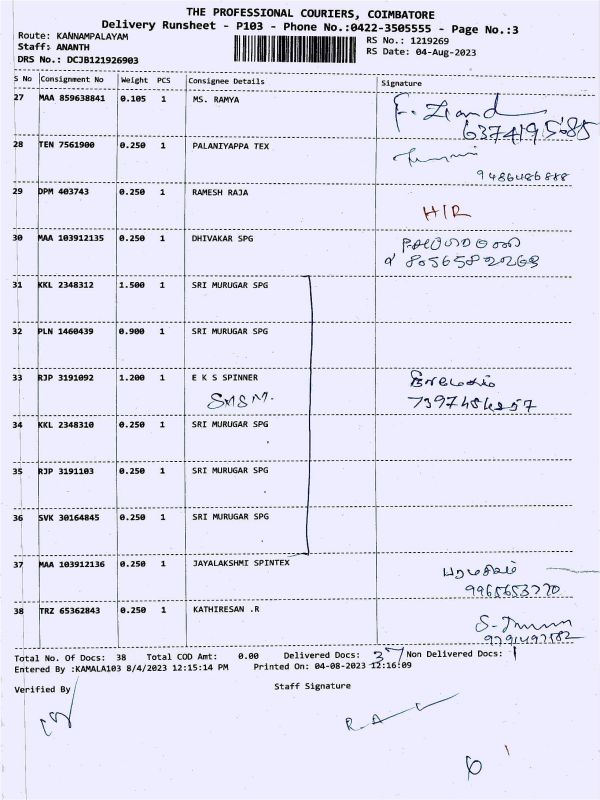 THE PROFESSIONAL COURIERS, COIMBATORE
Delivery Runsheet - P103 - Phone No.:0422-3505555 - Page No.:3
Route: KANNAMPALAYAM RS No.: 1219269
Staff: ANANTH RS Date: 04-Aug-2023
DRS No.: DCJB121926903
S No Consignment No Weight PCS Consignee Details Signature
27 MAA 859638841 0.105 1 MS. RAMYA
6374195685
28 TEN 7561900 0.250 1 PALANIYAPPA TEX
9486486888
29 DPM 403743 0.250 1 RAMESH RAJA
H/R
30 MAA 103912135 0.250 1 DHIVAKAR SPG
8056582026
31 KKL 2348312 1.500 1 SRI MURUGAR SPG
32 PLN 1460439 0.900 1 SRI MURUGAR SPG
33 RJP 3191092 1.200 1 E K S SPINNER
SMSM.
34 KKL 2348310 0.250 1 SRI MURUGAR SPG
35 RJP 3191103 0.250 1 SRI MURUGAR SPG
36 SVK 30164845 0.250 1 SRI MURUGAR SPG
37 MAA 103912136 0.250 1 JAYALAKSHMI SPINTEX
9965653770
38 TRZ 65362843 0.250 1 KATHIRESAN .R
9791497582
Total No. Of Docs: 38 Total COD Amt: 0.00 Delivered Docs: 37 Non Delivered Docs: 1
Entered By :KAMALA103 8/4/2023 12:15:14 PM Printed On: 04-08-2023 12:16:09
Verified By Staff Signature